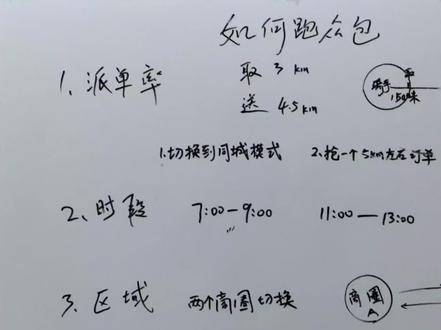 如何跑众包
1、派单率
取 3 km
送 4.5 km
骑手
150米
1.切换到同城模式 2、抢一个5km左右订单
2、时段 7:00—9:00 11:00—13:00
3、区域 两个商圈切换
商圈
A